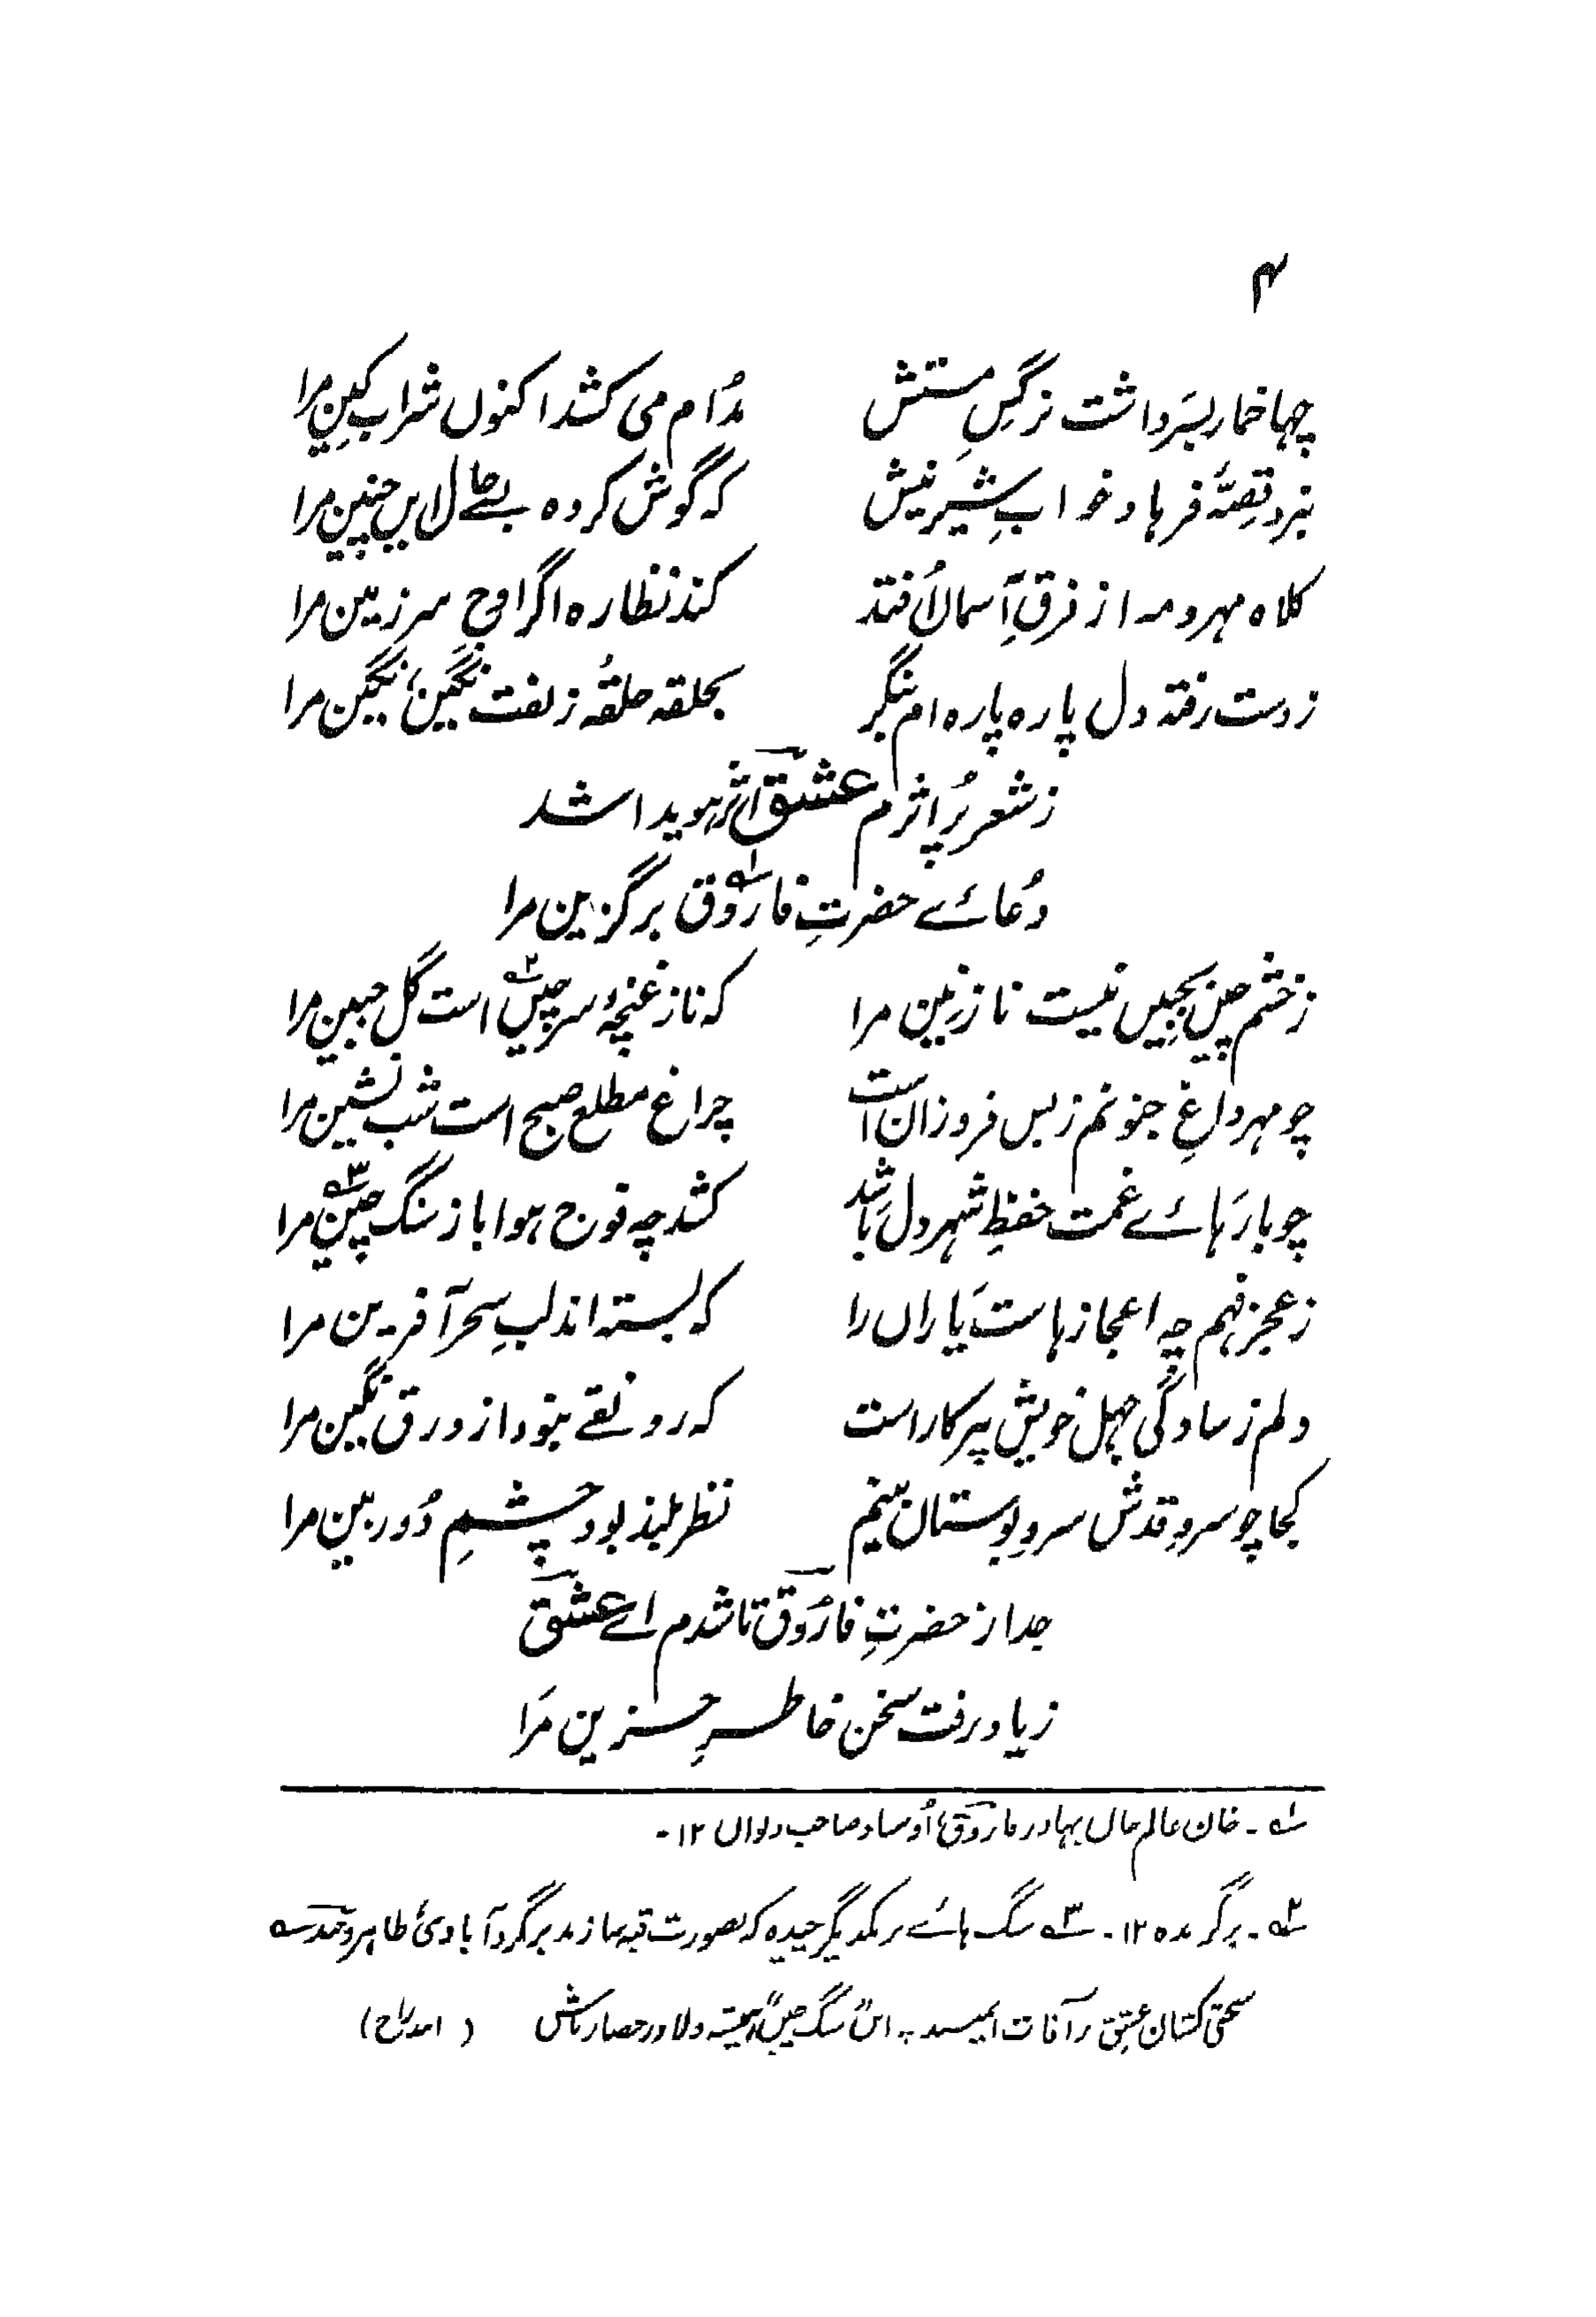 ۴
چہا خمار بسَر داشت نرگسِ مستش مدُام می کشد اکنوں شراب کینِ مرا
نبرد قصّۂ فرہاد خوابِ شیرینیش کہ گوش کردہ بحال ایں چنین مرا
کلاہ مہر و مہ از فرقِ آسماں اُفتد کند نظارہ اگر اوجِ سرزمین مرا
ز دست رفتہ دل پارہ پارہ ام بنگر بحلقہ حلقۂ زلفت نگین، نگین مرا
ز شعر پُر اثرم عشق اثر ہویدا شد
دُعائے حضرتِ فاروق۱ برگزین مرا
ز خشم چین بجبیں نیست نازنین مرا کہ ناز غنچۂ سرچیں۲ است گل جبین مرا
چو مہر داغِ جنونم ز بس فروزان است چراغ مطلع صبح است شب نشین مرا
چو بارہائے غمت حفظِ شہر دل باشد کشد چہ فوج ہوا باز سنگ چین۳ مرا
ز عجز فہم چہ اعجازہاست یَاراں را کہ بستہ اند لبِ سحر آفرین مرا
دلم ز سادگی جہل خویش پرکار است کہ رونقے بنود از ورق نگین مرا
کجا چو سرو قدش سروِ بوستان بینم نظر بلند بود چشمِ دُور بین مرا
جدا ز حضرتِ فارُوق تا شدم اے عشق
ز یاد رفت سخن خاطرِ حزین مرَا
۱۔ خان عالم خاں بہادر فاروق، اُوستاد صاحب دیواں ۱۲۔
۲۔ برگزیدہ ۱۲۔ ۳ سنگ ہائے بر یکدیگر چیدہ کہ بصورت قبہ سازند برگرد آبادیٔ طاہر وحید
سختی کشان عشق ز آفات ایمنند